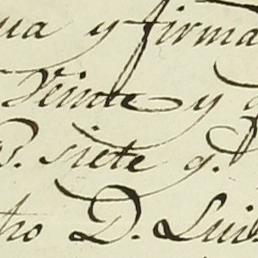 y firma
Veinte y
siete q.
D. Luis